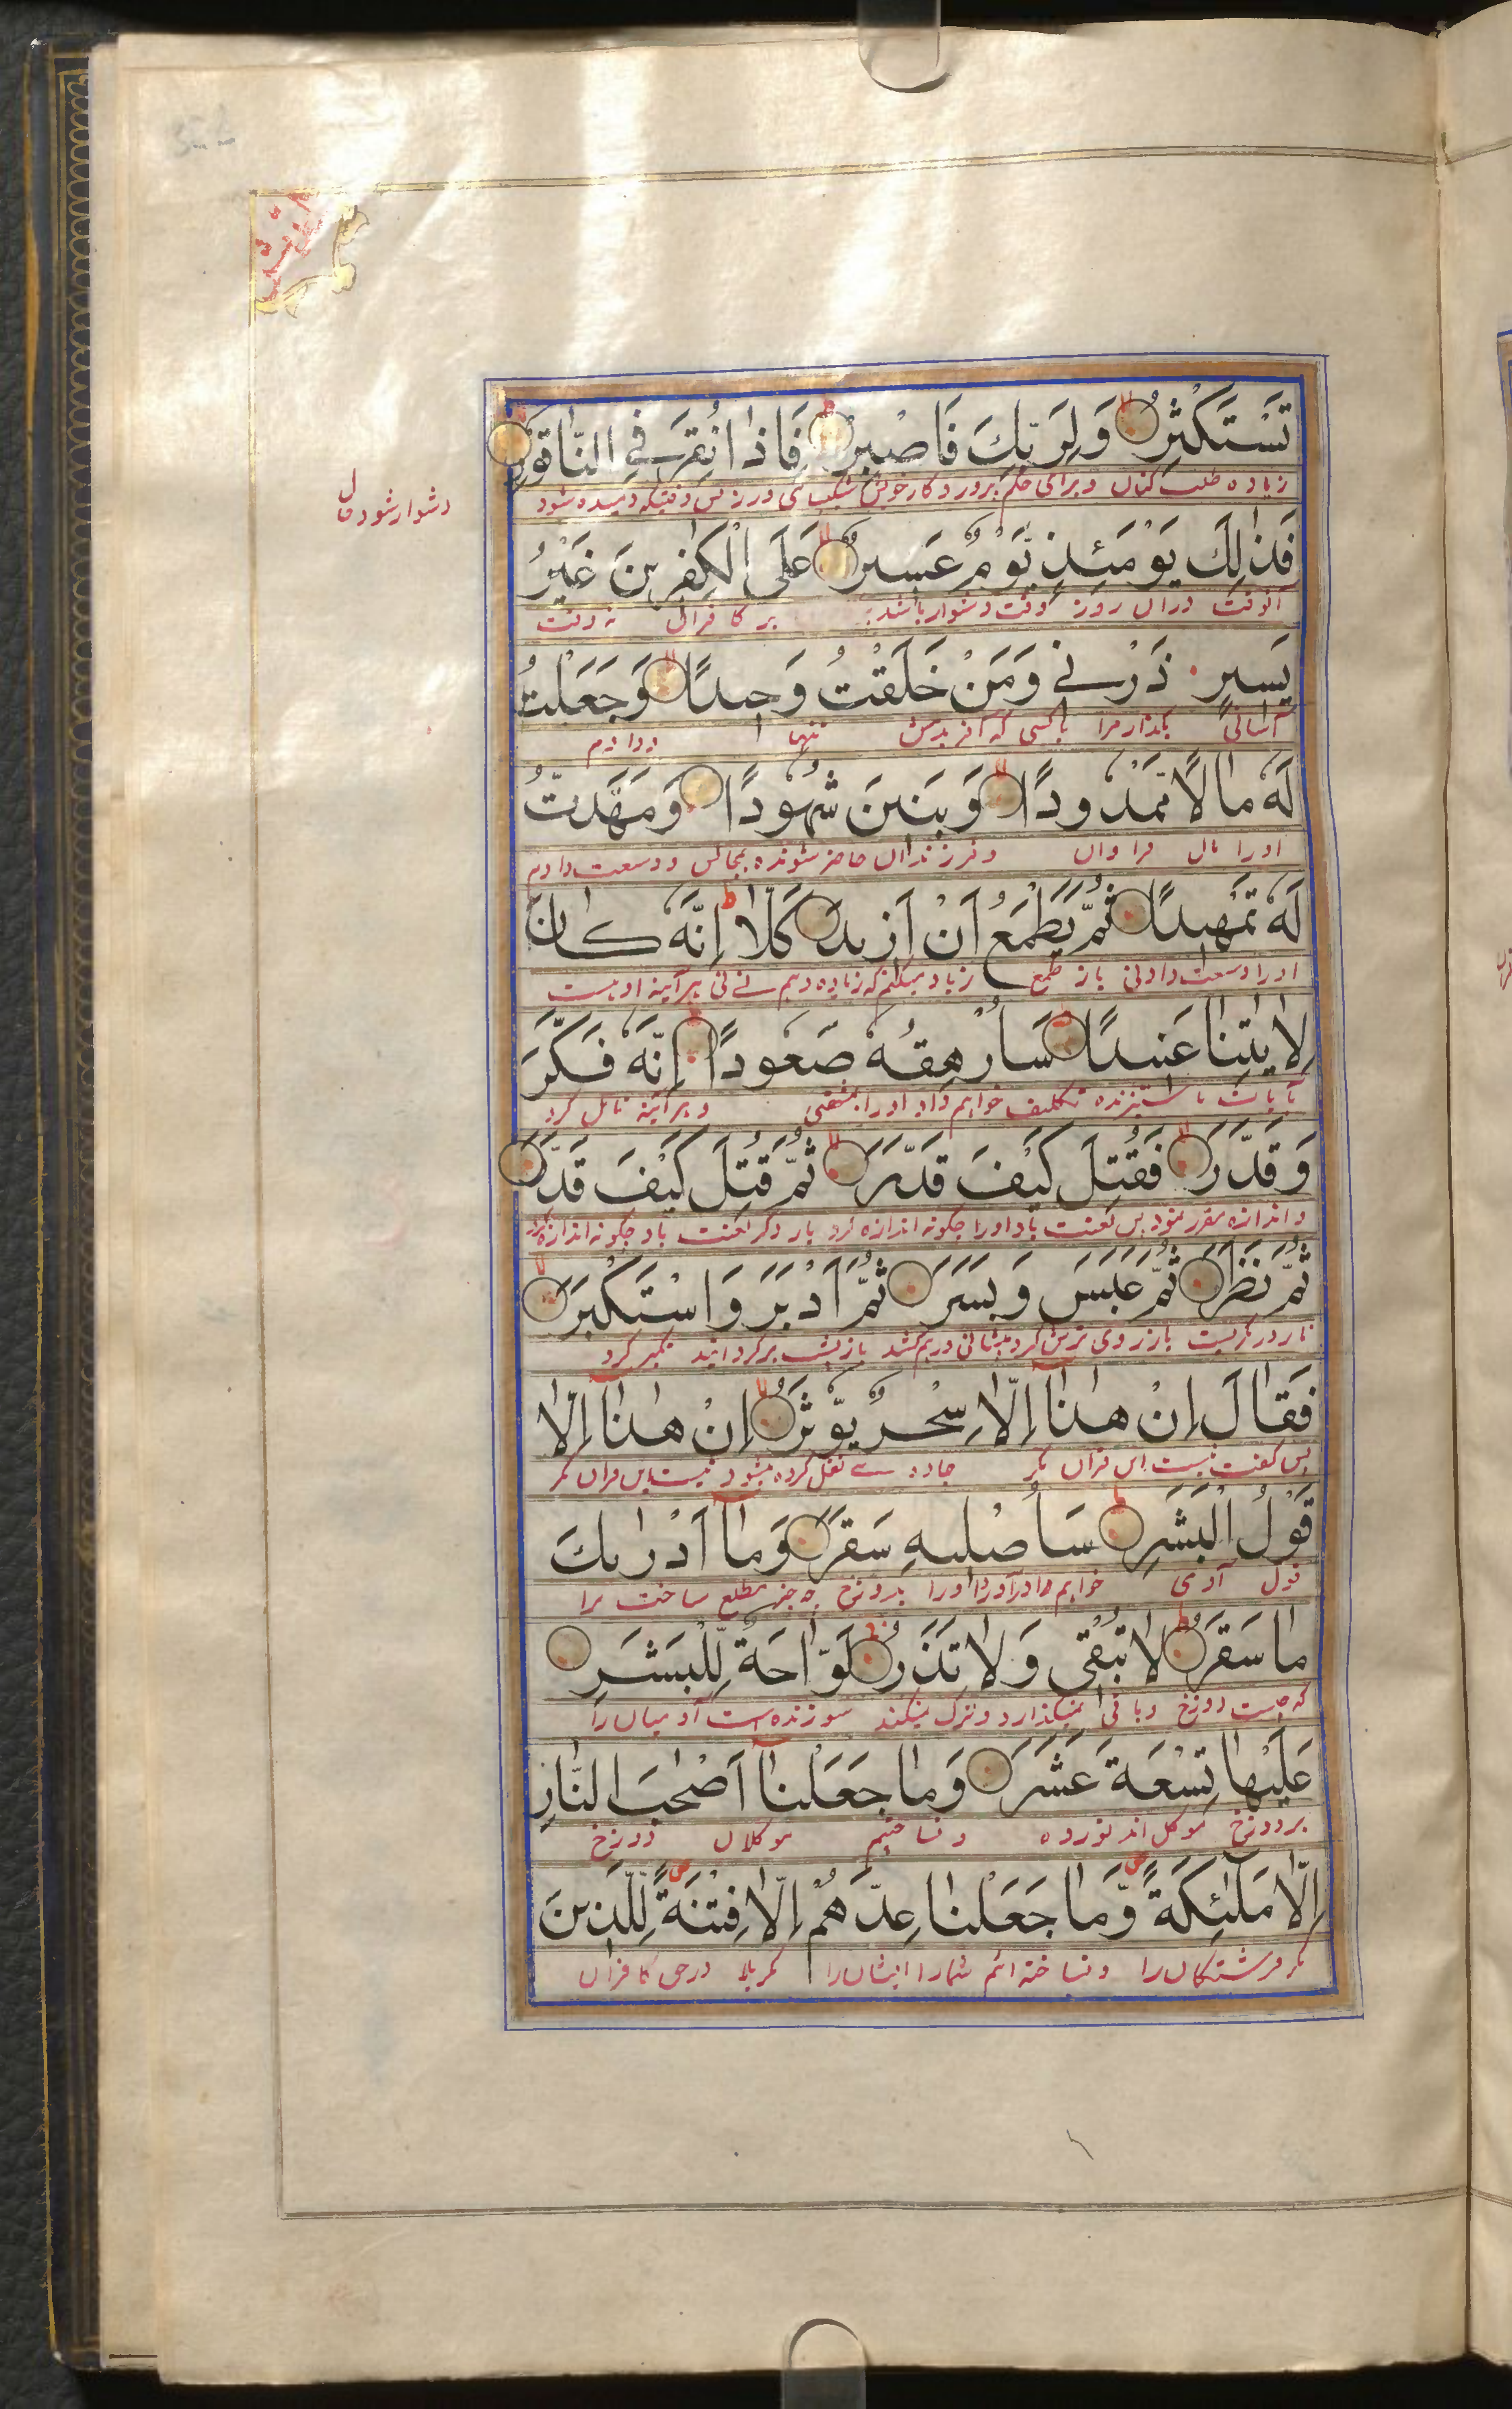 تَسْتَكْثِرُ وَلِرَبِّكَ فَاصْبِرْ فَاِذَا نُقِرَ فِي النَّاقُوْرِ
وبرای حکم پروردگار خویش شکیبائی ورز پس وقتیکه دمیده شود
دشوار شود
فَذٰلِكَ يَوْمَئِذٍ يَّوْمٌ عَسِيْرٌ عَلَى الْكٰفِرِيْنَ غَيْرُ
آنوقت دران روز وقت دشوار باشد بر کافران نه وقت
يَسِيْرٍ ذَرْنِيْ وَمَنْ خَلَقْتُ وَحِيْدًا وَّجَعَلْتُ
آسانی بگذار مرا با کسی که آفریدمش تنها ودادم
لَهٗ مَالًا مَّمْدُوْدًا وَّبَنِيْنَ شُهُوْدًا وَّمَهَّدْتُّ
اورا مال فراوان وفرزندان حاضر شونده بمجالس ووسعت دادم
لَهٗ تَمْهِيْدًا ثُمَّ يَطْمَعُ اَنْ اَزِيْدَ كَلَّا اِنَّهٗ كَانَ
اورا وسعت دادنی باز طمع که زیاده دهم نی نی هرآینه او هست
لِاٰيٰتِنَا عَنِيْدًا سَاُرْهِقُهٗ صَعُوْدًا اِنَّهٗ فَكَّرَ
بآیات ما ستیزنده تکلیف خواهم داد اورا هرآینه تامل کرد
وَقَدَّرَ فَقُتِلَ كَيْفَ قَدَّرَ ثُمَّ قُتِلَ كَيْفَ قَدَّرَ
واندازه مقرر نمود پس لعنت باد اورا چگونه اندازه کرد بار دگر لعنت باد چگونه اندازه کرد
ثُمَّ نَظَرَ ثُمَّ عَبَسَ وَبَسَرَ ثُمَّ اَدْبَرَ وَاسْتَكْبَرَ
باز روی ترش کرد وپیشانی درهم کشید باز پشت برگردانید تکبر کرد
فَقَالَ اِنْ هٰذَآ اِلَّا سِحْرٌ يُّؤْثَرُ اِنْ هٰذَآ اِلَّا
پس گفت نیست این قران مگر جادوی نقل کرده میشود نیست این قران مگر
قَوْلُ الْبَشَرِ سَاُصْلِيْهِ سَقَرَ وَمَآ اَدْرٰىكَ
قول آدمی خواهم درآورد اورا بدوزخ چه چیز مطلع ساخت ترا
مَا سَقَرُ لَا تُبْقِيْ وَلَا تَذَرُ لَوَّاحَةٌ لِّلْبَشَرِ
که چیست دوزخ باقی نمیگذارد وترک نمیکند سوزنده است آدمیان را
عَلَيْهَا تِسْعَةَ عَشَرَ وَمَا جَعَلْنَآ اَصْحٰبَ النَّارِ
بر دوزخ موکل اند نوزده ونساختیم موکلان دوزخ
اِلَّا مَلٰٓئِكَةً وَّمَا جَعَلْنَا عِدَّتَهُمْ اِلَّا فِتْنَةً لِّلَّذِيْنَ
مگر فرشتگان را ونساخته ایم شمار ایشان را مگر بلا در حق کافران